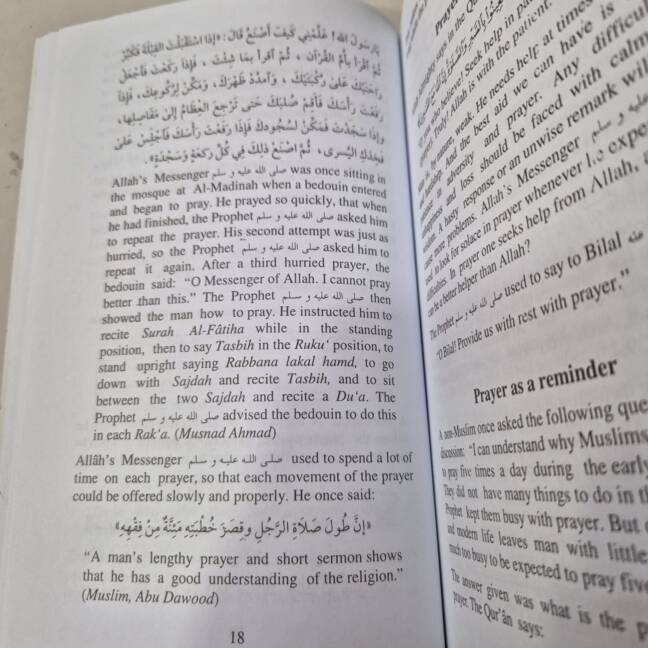 يَارَسُولَ اللهِ! عَلِّمْنِي كَيْفَ أَصْنَعُ قَالَ: «إِذَا اسْتَقْبَلْتَ الْقِبْلَةَ فَكَبِّرْ
ثُمَّ اقْرَأْ بِأُمِّ الْقُرْآنِ، ثُمَّ اقْرَأْ بِمَا شِئْتَ، فَإِذَا رَكَعْتَ فَاجْعَلْ
رَاحَتَيْكَ عَلَى رُكْبَتَيْكَ، وَامْدُدْ ظَهْرَكَ، وَمَكِّنْ لِرُكُوعِكَ، فَإِذَا
رَفَعْتَ رَأْسَكَ فَأَقِمْ صُلْبَكَ حَتَّى تَرْجِعَ الْعِظَامُ إِلَى مَفَاصِلِهَا،
وَإِذَا سَجَدْتَ فَمَكِّنْ لِسُجُودِكَ فَإِذَا رَفَعْتَ رَأْسَكَ فَاجْلِسْ عَلَى
فَخِذِكَ الْيُسْرَى، ثُمَّ اصْنَعْ ذَلِكَ فِي كُلِّ رَكْعَةٍ وَسَجْدَةٍ».
Allah's Messenger صلى الله عليه و سلم was once sitting in
the mosque at Al-Madinah when a bedouin entered
and began to pray. He prayed so quickly, that when
he had finished, the Prophet صلى الله عليه و سلم asked him
to repeat the prayer. His second attempt was just as
hurried, so the Prophet صلى الله عليه و سلم asked him to
repeat it again. After a third hurried prayer, the
bedouin said: “O Messenger of Allah. I cannot pray
better than this.” The Prophet صلى الله عليه و سلم then
showed the man how to pray. He instructed him to
recite Surah Al-Fâtiha while in the standing
position, then to say Tasbih in the Ruku‘ position, to
stand upright saying Rabbana lakal hamd, to go
down with Sajdah and recite Tasbih, and to sit
between the two Sajdah and recite a Du‘a. The
Prophet صلى الله عليه و سلم advised the bedouin to do this
in each Rak‘a. (Musnad Ahmad)
Allâh's Messenger صلى الله عليه و سلم used to spend a lot of
time on each prayer, so that each movement of the prayer
could be offered slowly and properly. He once said:
«إِنَّ طُولَ صَلَاةِ الرَّجُلِ وَقِصَرَ خُطْبَتِهِ مَئِنَّةٌ مِنْ فِقْهِهِ»
“A man's lengthy prayer and short sermon shows
that he has a good understanding of the religion.”
(Muslim, Abu Dawood)
18
you who believe! Seek help in
Truly! Allah is with the patient.
by nature, weak. He needs help at times
And the best aid we can have is
adversity and prayer. Any
and loss should be faced with calm
A hasty response or an unwise remark
more problems. Allah's Messenger صلى الله عليه و
to look for solace in prayer whenever
In prayer one seeks help from Allah,
be a better helper than Allah?
The Prophet صلى الله عليه و سلم used to say to Bilal
“O Bilal! Provide us with rest with prayer.”
Prayer as a reminder
A non-Muslim once asked the following
discussion: “I can understand why Muslims
to pray five times a day during the
They did not have many things to do in
Prophet kept them busy with prayer. But
and modern life leaves man with little
much too busy to be expected to pray
The answer given was what is the
prayer. The Qur'ân says: